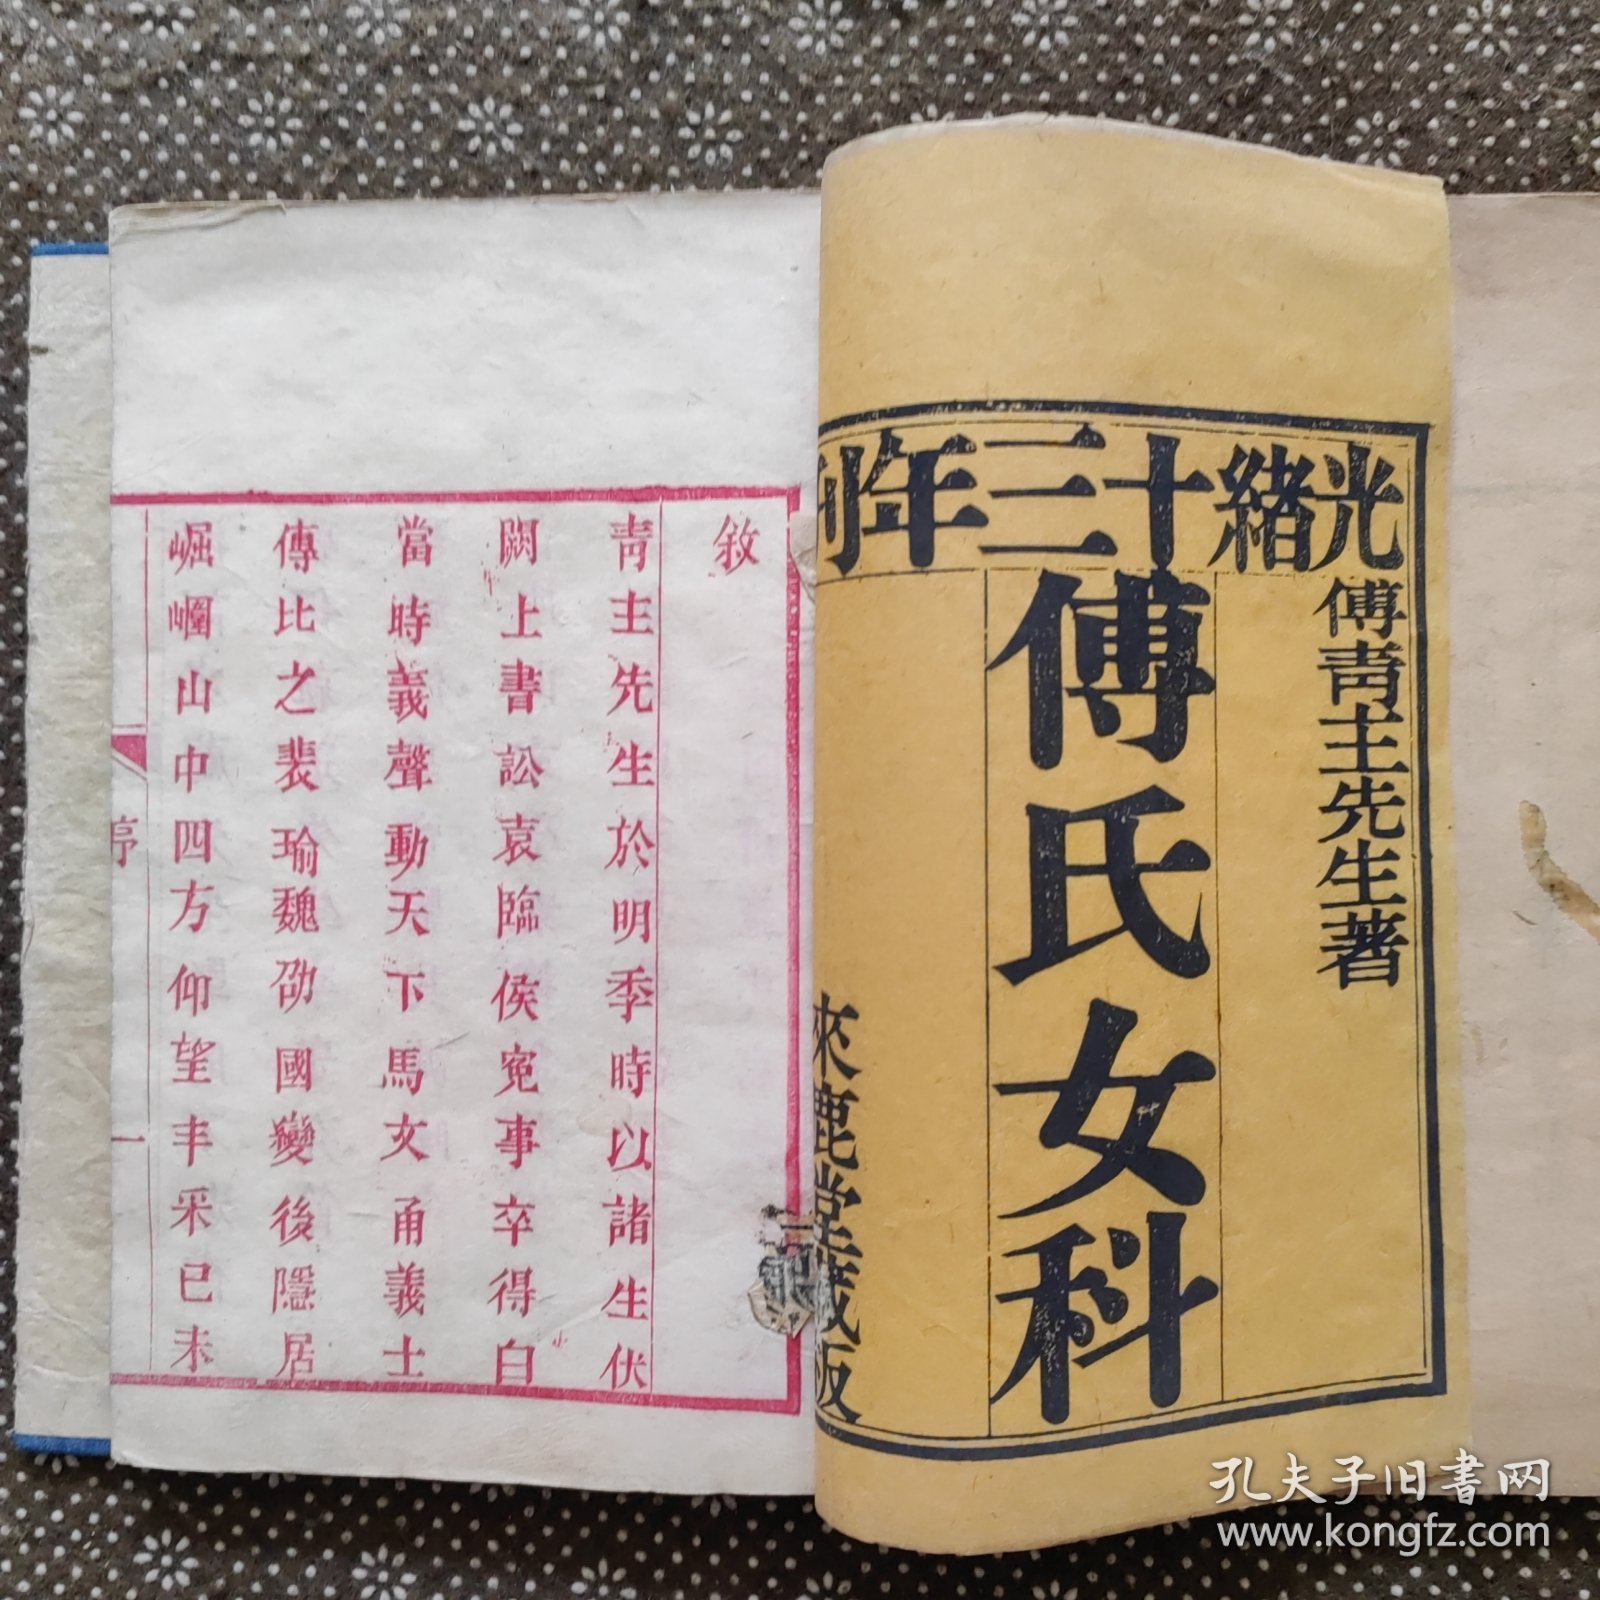 光緒十三年刊
傅青主先生著
傅氏女科
來鹿堂藏版
敘
青主先生於明季時以諸生伏
闕上書訟袁臨侯冤事卒得白
當時義聲動天下馬文甬義士
傳比之裴瑜魏劭國變後隱居
崛𡾋山中四方仰望丰采已未
序
一
孔夫子旧书网
www.kongfz.com